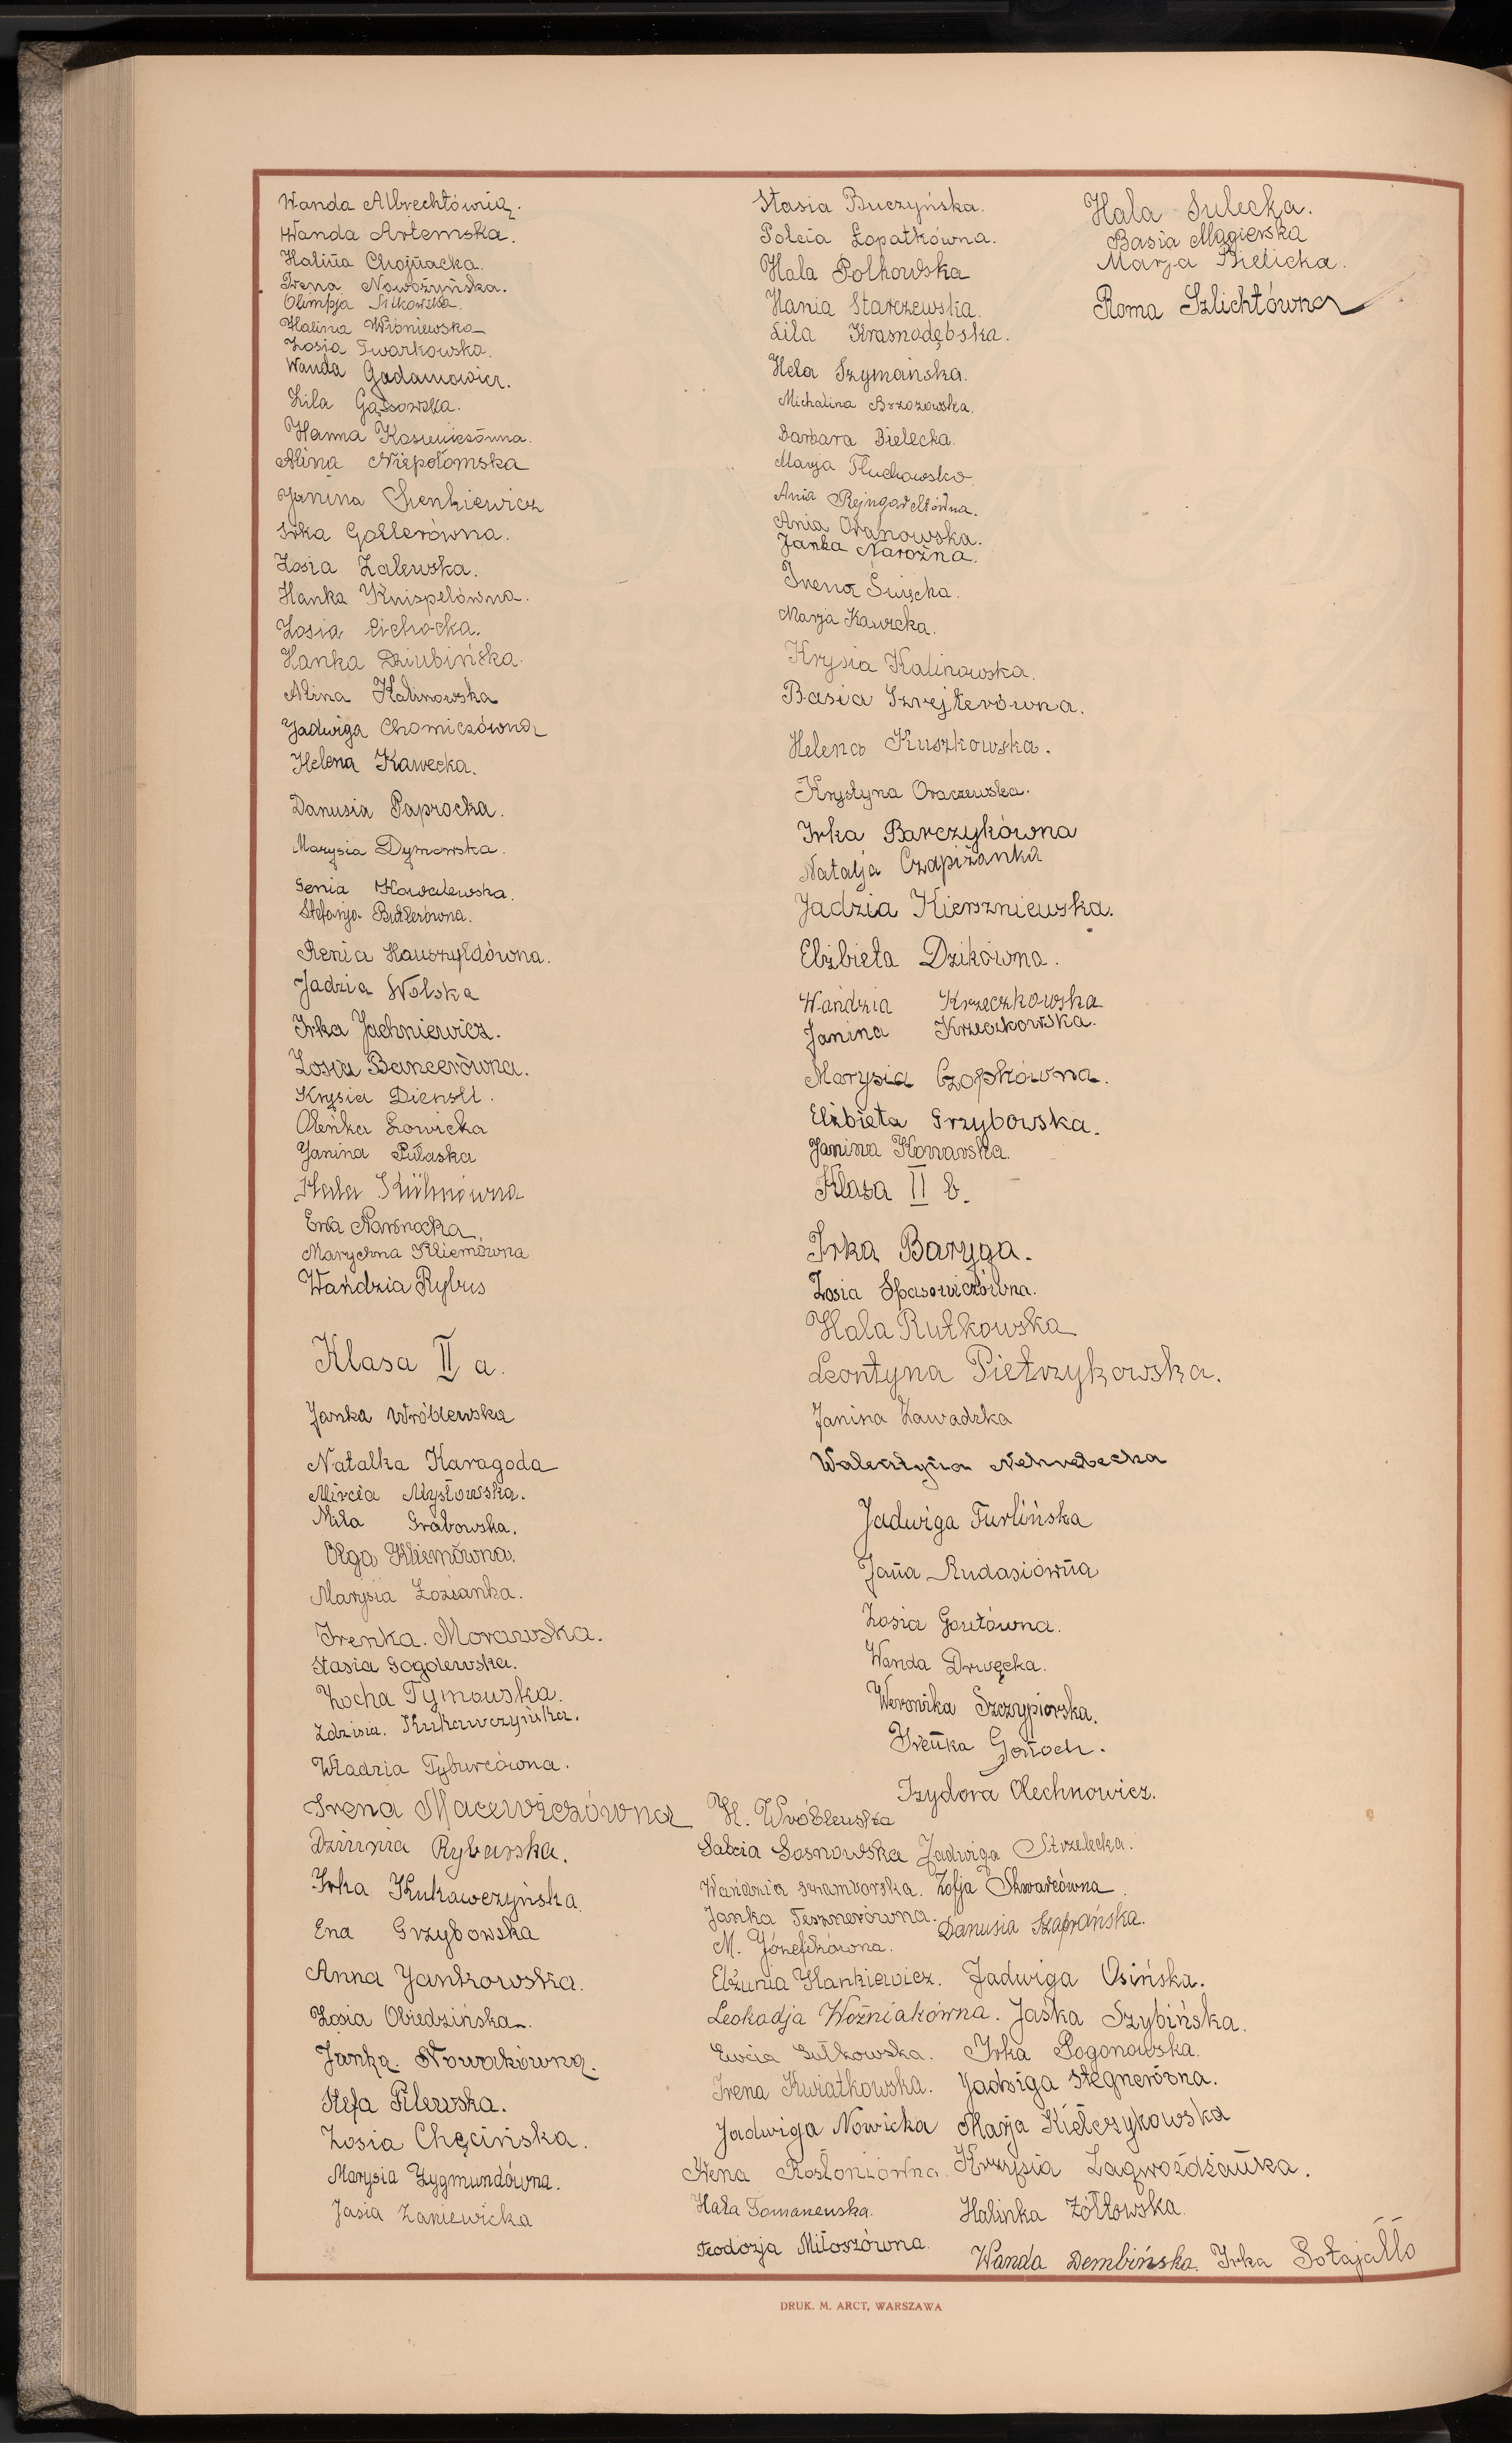 Wanda Albrechtówną.
Wanda Artemska.
Halina Chojnacka.
Irena Nowożyńska.
Olimpja Sitkowska.
Halina Wiśniewska
Zosia Twarkowska.
Wanda Gadamowicz.
Lila Gąssowska.
Hanna Kosmulczówna.
Alina Niepołomska
Janina Sienkiewicz
Irka Gollerówna.
Zosia Zalewska.
Hanka Knispelówna.
Zosia Cichocka.
Hanka Dziubińska.
Alina Kalinowska
Jadwiga Chomiczówna
Helena Kawecka.
Danusia Paprocka.
Marysia Dymowska.
Genia Kowalewska.
Stefanja Butlerówna.
Renia Hauszyldówna.
Jadzia Wolska
Irka Jachniewicz.
Zosia Bancerówna.
Krysia Dienstl.
Oleńka Łowicka
Janina Pułaska
Hala Kühnówna
Ewa Nawrocka
Marychna Kliemówna
Wańdzia Rybus
Klasa II a.
Janka Wróblewska
Natalka Karagoda
Mircia Mysłowska.
Miła Grabowska.
Olga Kliemówna.
Marysia Łozianka.
Irenka. Morawska.
Stasia Gogolewska.
Zocha Tymowska.
Zdzisia. Kukawczyńska.
Władzia Tyburcówna.
Irena Macewiczówna
Dziunia Rybarska.
Irka Kukawczyńska
Ena Grzybowska
Anna Jankowska.
Zosia Obiedzińska.
Janka. Nowakówna.
Hefa Pilewska.
Zosia Chęcińska.
Marysia Zygmundówna.
Jasia Zaniewicka
Stasia Buczyńska.
Polcia Łopatkówna.
Hala Polkowska
Hania Starzewska.
Lila Krasnodębska.
Hela Szymańska.
Michalina Brzozowska.
Barbara Bielecka.
Marja Tłuchowska.
Ania Rejngardtówna.
Ania Oranowska.
Janka Narożna.
Irena Święcka.
Marja Kawecka.
Krysia Kalinowska.
Basia Szrejterówna.
Helena Kuszkowska.
Krystyna Oraczewska.
Irka Barczykówna
Natalja Czapiżanka
Jadzia Kierzniewska.
Elżbieta Dzikówna.
Wańdzia Krzeczkowska
Janina Krzeczkowska.
Marysia Czopkówna.
Elżbieta Grzybowska.
Janina Konarska.
Klasa II b.
Irka Baryga.
Zosia Spasowiczówna.
Hala Rutkowska
Leontyna Pietrzykowska.
Janina Zawadzka
Walentyna Nehrebecka
Jadwiga Turlińska
Jana Rudasiówna
Zosia Goztówna.
Wanda Drwęcka.
Weronika Szczypiorska.
Irenka Gonoch.
Izydora Olechnowicz.
H. Wróblewska
Salcia Sosnowska Jadwiga Strzelecka.
Wańdzia Szamborska. Zofja Skwarcówna.
Janka Tesznerówna. Danusia Szafrańska.
M. Józefikówna.
Elżunia Hankiewicz. Jadwiga Osińska.
Leokadja Woźniakówna. Jaśka Szybińska.
Ewcia Gutkowska. Irka Pogonowska.
Irena Kwiatkowska. Jadwiga Stegnerówna.
Jadwiga Nowicka Marja Kiełczykowska
Irena Rosłoniówna. Krzysia Zagwoździanka.
Hala Tomanewska. Halinka Żółtowska.
Teodozja Miłoszówna. Wanda Dembińska. Irka Sołajałło
Hala Sulecka.
Basia Magierska
Marja Bielicka.
Roma Szlichtówna
DRUK. M. ARCT, WARSZAWA